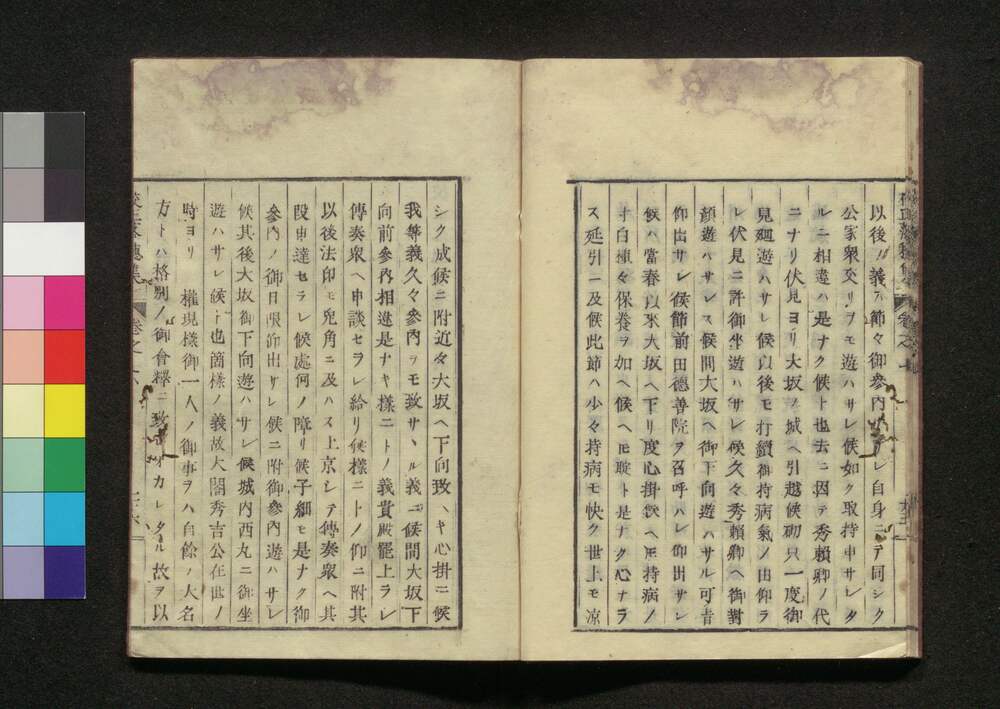 以後ノ義ハ節々御參内 レ自身ニテ同シク
公家衆交リヲモ遊ハサレ候如ク取持申サレタ
ルニ相違ハ是ナク候ト也去ニ因テ秀賴卿ノ代
ニナリ伏見ヨリ大坂ノ城ヘ引越候砌只一度御
見廻遊ハサレ候以後モ打續御持病氣ノ由仰ラ
レ伏見ニ許御坐遊ハサレ候久々秀賴卿ヘ御對
顏遊ハサレス候間大坂ヘ御下向遊ハサル可音
仰出サレ候節前田德善院ヲ召呼ハレ仰出サレ
候ハ當春以來大坂ヘ下リ度心掛候ヘ𪜈持病ノ
寸白種々保養ヲ加ヘ候ヘ𪜈聢ト是ナク心ナラ
ス延引ニ及候此節ハ少々持病モ快ク世上モ凉
シク成候ニ附近々大坂ヘ下向致ヘキ心掛ニ候
我等義久々參内ヲモ致サヽル義ニ候間大坂下
向前參内相違是ナキ樣ニトノ義貴殿罷上ラレ
傳奏衆ヘ申談セラレ給リ候樣ニトノ仰ニ附其
以後法印モ兎角ニ及ハス上京シテ傳奏衆ヘ其
段申達セラレ候處何ノ障リ候子細モ是ナク御
參内ノ御日限仰出サレ候ニ附御參内遊ハサレ
候其後大坂御下向遊ハサレ候城内西丸ニ御坐
遊ハサレ候ト也箇樣ノ義故大閤秀吉公在世ノ
時ヨリ 權現樣御一人ノ御事ヲハ自餘ノ大名
方トハ格別ノ御會釋ニ致 オカレタル故ヲ以
卷之